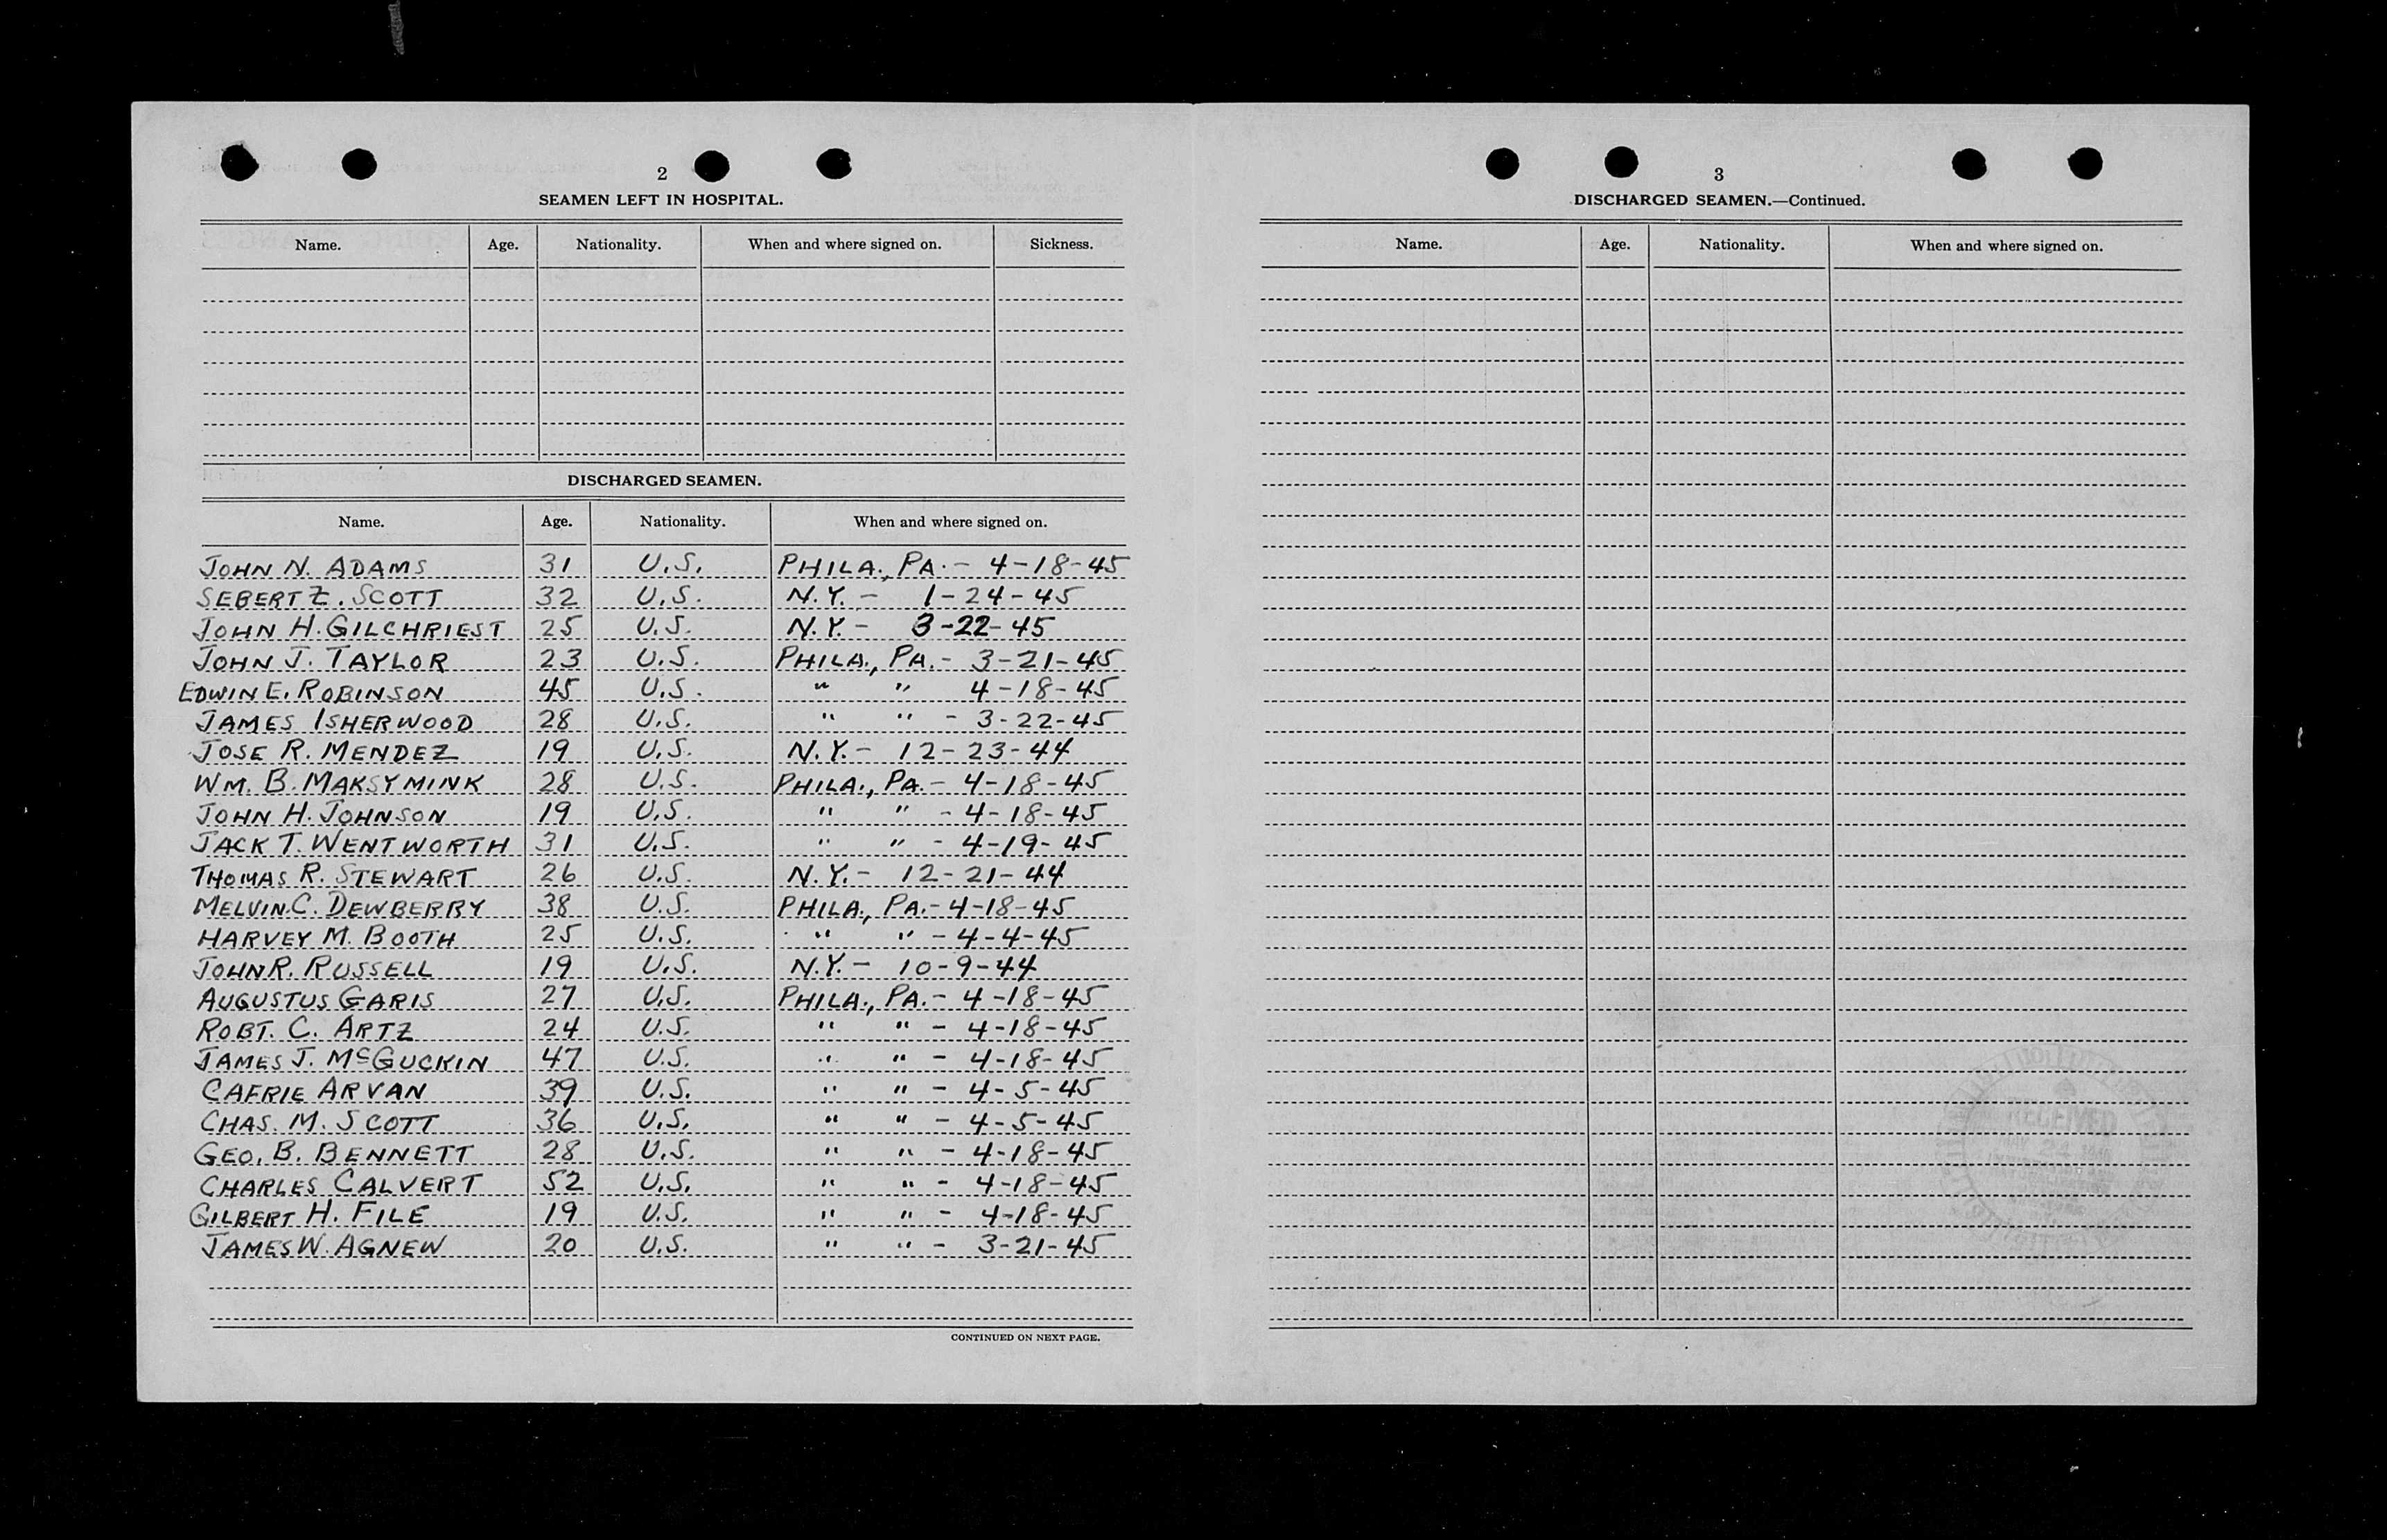 2
SEAMEN LEFT IN HOSPITAL.
Name. Age. Nationality. When and where signed on. Sickness.
DISCHARGED SEAMEN.
Name. Age. Nationality. When and where signed on.
JOHN N. ADAMS 31 U.S. PHILA., PA. - 4-18-45
SEBERT Z. SCOTT 32 U.S. N.Y. - 1-24-45
JOHN H. GILCHRIEST 25 U.S. N.Y. - 3-22-45
JOHN J. TAYLOR 23 U.S. PHILA., PA. - 3-21-45
EDWIN E. ROBINSON 45 U.S. " " 4-18-45
JAMES ISHERWOOD 28 U.S. " " - 3-22-45
JOSE R. MENDEZ 19 U.S. N.Y. - 12-23-44
WM. B. MAKSYMINK 28 U.S. PHILA., PA. - 4-18-45
JOHN H. JOHNSON 19 U.S. " " - 4-18-45
JACK T. WENTWORTH 31 U.S. " " - 4-19-45
THOMAS R. STEWART 26 U.S. N.Y. - 12-21-44
MELVIN C. DEWBERRY 38 U.S. PHILA., PA. - 4-18-45
HARVEY M. BOOTH 25 U.S. " " - 4-4-45
JOHN R. RUSSELL 19 U.S. N.Y. - 10-9-44
AUGUSTUS GARIS 27 U.S. PHILA., PA. - 4-18-45
ROBT. C. ARTZ 24 U.S. " " - 4-18-45
JAMES J. McGUCKIN 47 U.S. " " - 4-18-45
CAFRIE ARVAN 39 U.S. " " - 4-5-45
CHAS. M. SCOTT 36 U.S. " " - 4-5-45
GEO. B. BENNETT 28 U.S. " " - 4-18-45
CHARLES CALVERT 52 U.S. " " - 4-18-45
GILBERT H. FILE 19 U.S. " " - 4-18-45
JAMES W. AGNEW 20 U.S. " " - 3-21-45
CONTINUED ON NEXT PAGE.
3
DISCHARGED SEAMEN.—Continued.
Name. Age. Nationality. When and where signed on.
RECEIVED
MAY 24